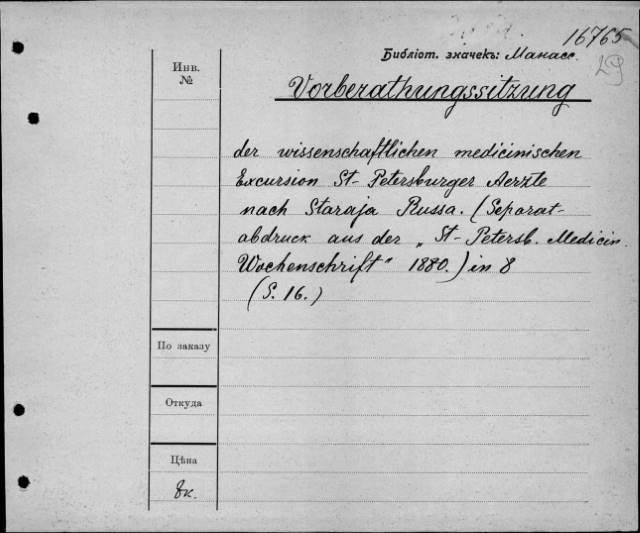 16765
Библіот. значекъ: Манасс.
Инв.
№
Vorberathungssitzung
der wissenschaftlichen medicinischen
Excursion St-Petersburger Aerzte
nach Staraja Russa. (Separat-
abdruck aus der „St-Petersb. Medicin.
Wochenschrift" 1880.) in 8
(S. 16.)
По заказу
Откуда
Цѣна
8к.